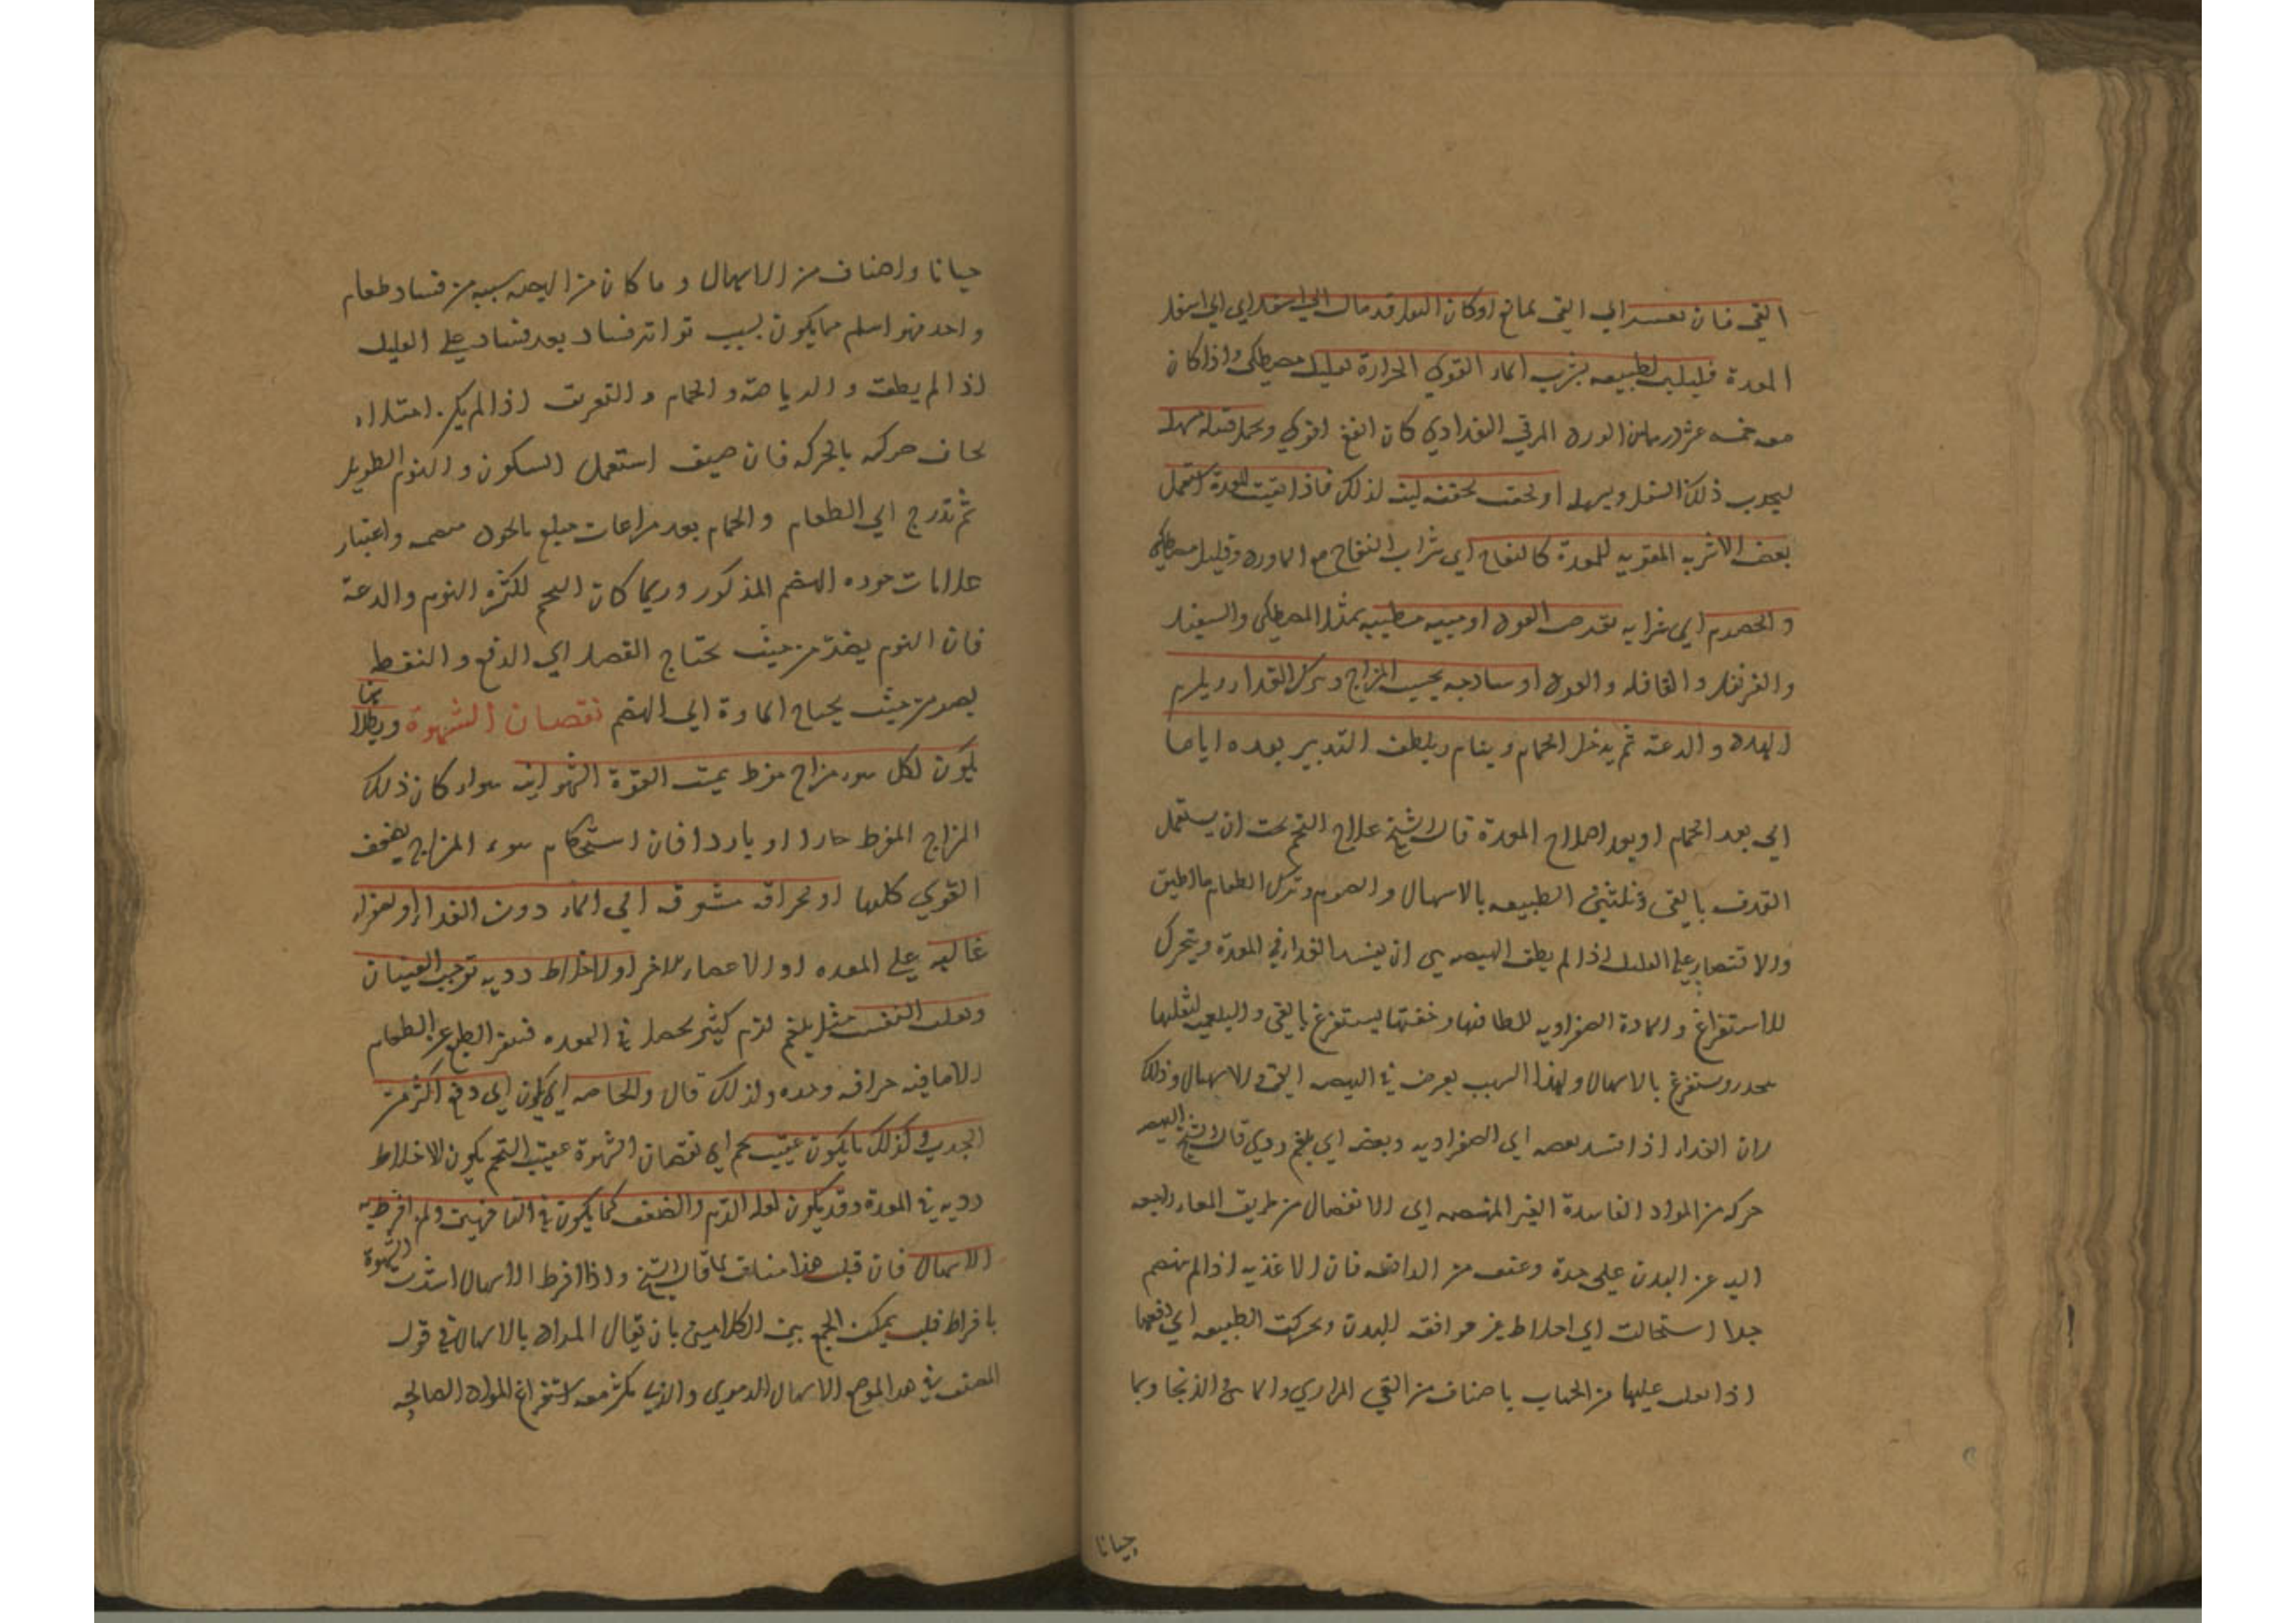 القى فان تعسر اي القى لمانع او كان الثفل قد مال الى اسفل اي الى اسفل
المعدة فليلين الطبيعه بشرب الماء القوى الحرارة بقليل مصطكى واذا كان
معه خمسه عشر درهما من الورد المربى البغدادي كان انفع اقوى وتحمل فتيله مسهله
ليجذب ذلك الثفل ويسهله او تحقن بحقنه لينه لذلك فاذا نقيت المعدة استعمل
بعض الاشربه المقويه للمعدة كالتفاح اي شراب التفاح مع الماورد وقليل مصطكى
والحصرم اي شرابه بقرص العود او ميبه مطيبه بمثل المصطكى والسنبل
والقرنفل والقاقله والعود او ساذجه بحسب المزاج وترك الغداء ويلزم
الهدو والدعة ثم يدخل الحمام وينام ويلطف التدبير بعده اياما
اي بعد الحمام او بعد اصلاح المعدة قال الشيخ علاج التخم يجب ان يستعمل
القذف بالقى وتلتين الطبيعه بالاسهال والصوم وترك الطعام ما اطيق
والاقتصار على القليل اذا لم يطق الهيضه هي ان يفسد الغداء في المعدة ويتحرك
للاستفراغ والمادة الصفراويه للطافتها وخفتها يستفرغ بالقى والبلغميه لثقلها
ينحدر ويستفرغ بالاسهال ولهذا السبب يعرض في الهيضه القى والاسهال وذلك
لان الغداء اذا فسد بعضه الى الصفراويه وبعضه الى بلغم ردي قال الشيخ الهيضه
حركه من المواد الفاسدة الغير المنهضمه الى الانفصال من طريق المعاء راجعه
اليه عن البدن على حدة وعنف من الدافعه فان الاغذيه اذا لم ينهضم
جيدا استحالت الى اخلاط غير موافقه للبدن وتحركت الطبيعه الى دفعها
اذا ثقلت عليها من الجهات باصناف من القى المراري والمائي والزنجاري وبما
جيانا
جيانا واصناف من الاسهال وما كان من الهيضه سببه من فساد طعام
واحد فهو اسلم مما يكون بسبب تواتر فساد بعد فساد على القليل
اذا لم يطق والرياضة والحمام والتعرق اذا لم يكن امتلاء
يخاف حركه بالحركه فان خيف استعمل السكون والنوم الطويل
ثم تدرج الى الطعام والحمام بعد مراعات مبلغ ما يجود هضمه واعتبار
علامات جوده الهضم المذكور وربما كان التخم لكثرة النوم والدعة
فان النوم يضر من حيث تحتاج الفضل الى الدفع والنقط
يضر من حيث يحتاج المادة الى الهضم نقصان الشهوة وبطلانها
يكون لكل سوء مزاج مفرط يميت القوة الشهوانيه سواء كان ذلك
المزاج المفرط حارا او باردا فان استحكام سوء المزاج يضعف
القوي كلها او لحراقه مشوقه الى الماء دون الغداء او لصفراء
غالبه على المعده او الاعضاء الاخر او لاخلاط رديه توجب الغثيان
وتقلب النفس مثل بلغم لزج كثير يحصل في المعده فينفر الطبع عن الطعام
الا ما فيه حرافه وحده ولذلك قال والحاجه اي يكون الى دفع اكثر من
الجذب وكذلك ما يكون عقيب تخم اي نقصان الشهوة عقيب التخم يكون لاخلاط
رديه في المعدة وقد يكون لقله الدم والضعف كما يكون في الناقهين ولمن افرط به
الاسهال فان قيل هذا مناف لما قال الشيخ واذا افرط الاسهال اشتدت الشهوة
بافراط قلت يمكن الجمع بين الكلامين بان يقال المراد بالاسهال في قول
المصنف في هذا الموضع الاسهال الدموي والذي يكثر معه استفراغ المواد الصالحه